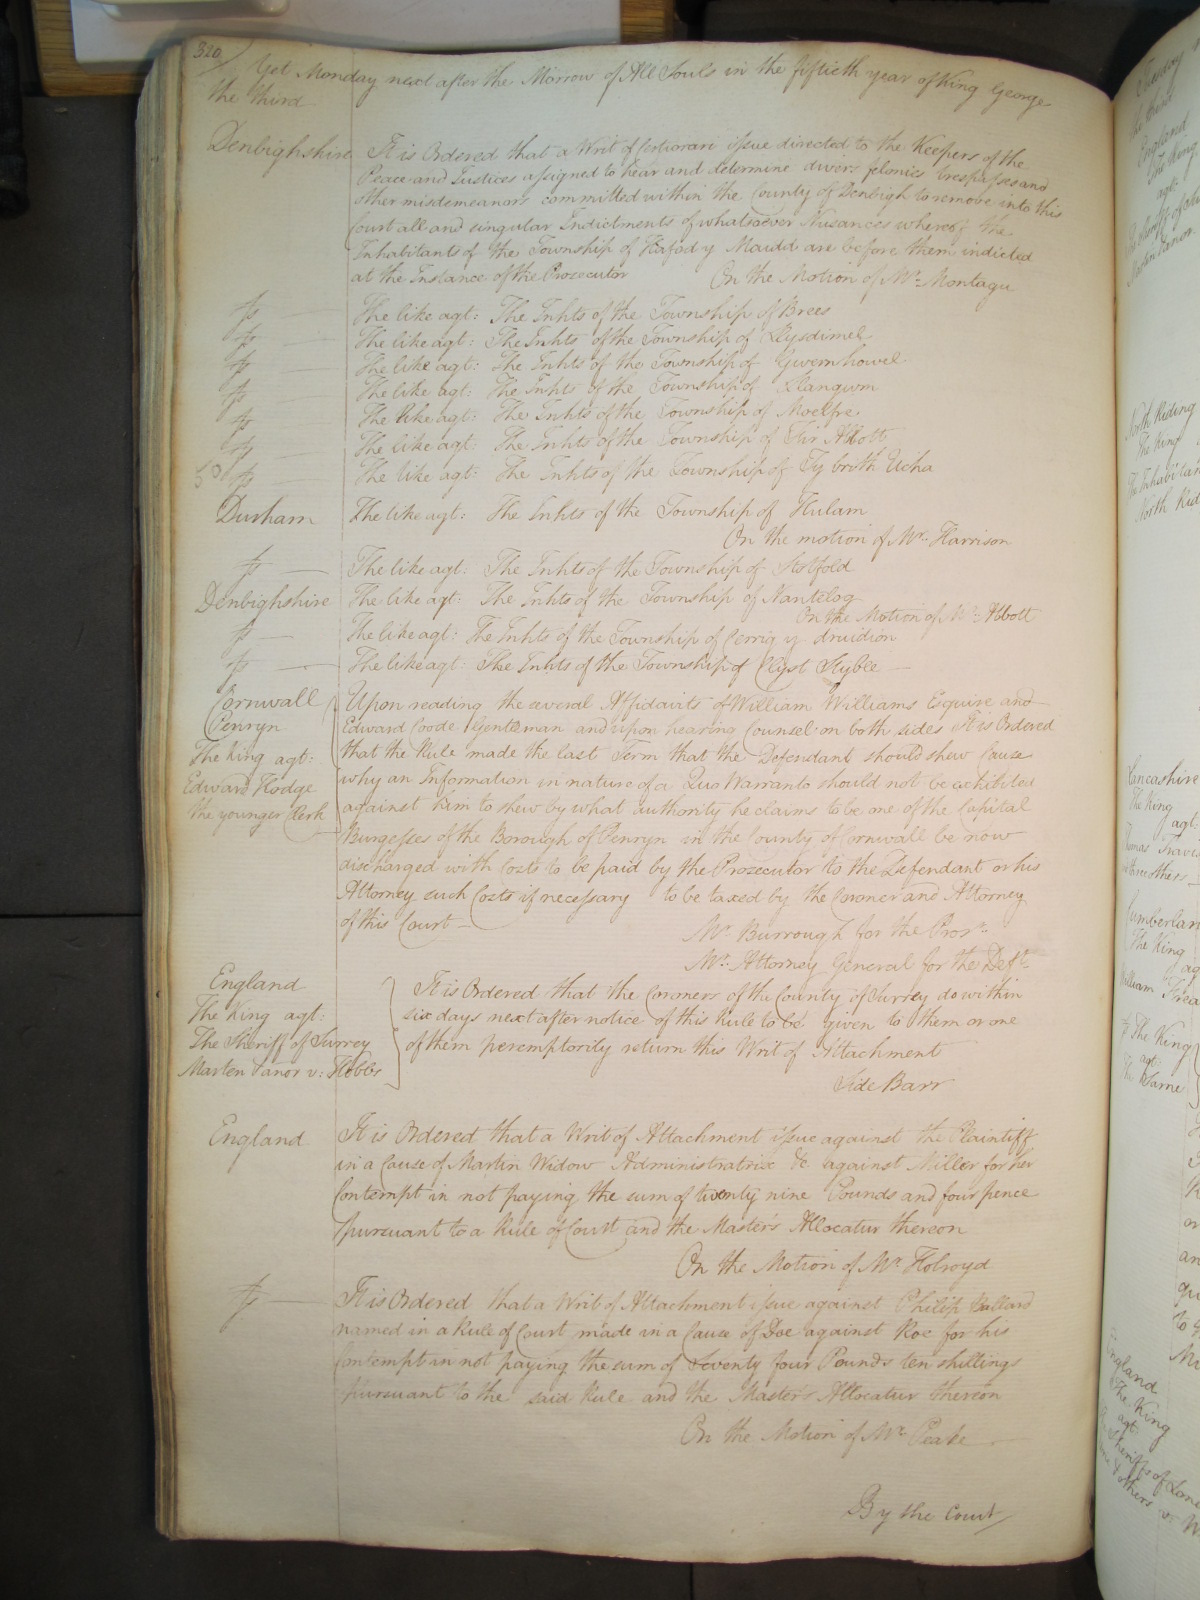 320
Yet Monday next after the Morrow of All Souls in the fiftieth year of King George
the third
Denbighshire It is Ordered that a Writ of Certiorari issue directed to the Keepers of the
Peace and Justices assigned to hear and determine divers felonies trespasses and
other misdemeanors committed within the County of Denbigh to remove into this
Court all and singular Indictments of whatsoever Nusances whereof the
Inhabitants of the Township of Hafod y Maidd are before them indicted
at the Instance of the Prosecutor On the Motion of Mr. Montagu
The like agt: The Inhts of the Township of Brees
The like agt: The Inhts of the Township of Llysdimel
The like agt: The Inhts of the Township of Gwernhowel
The like agt: The Inhts of the Township of Llangwm
The like agt: The Inhts of the Township of Moelfre
The like agt: The Inhts of the Township of Tir Abbott
The like agt: The Inhts of the Township of Ty brith Ucha
Durham The like agt: The Inhts of the Township of Hulam
On the motion of Mr. Harrison
The like agt: The Inhts of the Township of
Denbighshire The like agt: The Inhts of the Township of Nantelog
On the Motion of Mr. Abbott
The like agt: The Inhts of the Township of Cerrig y druidion
The like agt: The Inhts of the Township of
Cornwall Upon reading the several Affidavits of William Williams Esquire and
Penryn Edward Coode Gentleman and upon hearing Counsel on both sides It is Ordered
The King agt: that the Rule made the last Term that the Defendant should shew Cause
Edward Hodge why an Information in nature of a Quo Warranto should not be exhibited
the younger Clerk against him to shew by what authority he claims to be one of the Capital
Burgesses of the Borough of Penryn in the County of Cornwall be now
discharged with Costs to be paid by the Prosecutor to the Defendant or his
Attorney such Costs if necessary to be taxed by the Coroner and Attorney
of this Court
Mr. Burrough for the Prosr.
Mr. Attorney General for the Deft.
England
The King agt: It is Ordered that the Coroners of the County of Surrey do within
The Sheriff of Surrey six days next after notice of this Rule to be given to them or one
Marten v: Hobbs of them peremptorily return this Writ of Attachment
Side Barr
England It is Ordered that a Writ of Attachment issue against the Plaintiff
in a Cause of Martin Widow Administratrix &c against Miller for her
Contempt in not paying the sum of twenty nine Pounds and four pence
pursuant to a Rule of Court and the Master's Allocatur thereon
On the Motion of Mr. Holroyd
It is Ordered that a Writ of Attachment issue against Philip Ballard
named in a Rule of Court made in a Cause of Doe against Roe for his
Contempt in not paying the sum of Seventy four Pounds ten shillings
pursuant to the said Rule and the Master's Allocatur thereon
On the Motion of Mr. Peake
By the Court
Tuesday
the third
England
The King
agt:
North Riding
The King
The Inhabitants
North Rid
Lancashire
The King
agt:
Cumberland
The King
The King
agt:
The Same
England
The King
agt: